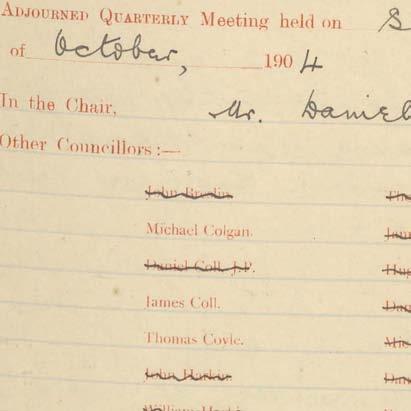 ADJOURNED QUARTERLY Meeting held on
of October, 1904
In the Chair, Mr. Daniel
Other Councillors:—
John Breslin
Michael Colgan.
Daniel Coll, J.P.
James Coll.
Thomas Coyle.
John Harkin
William